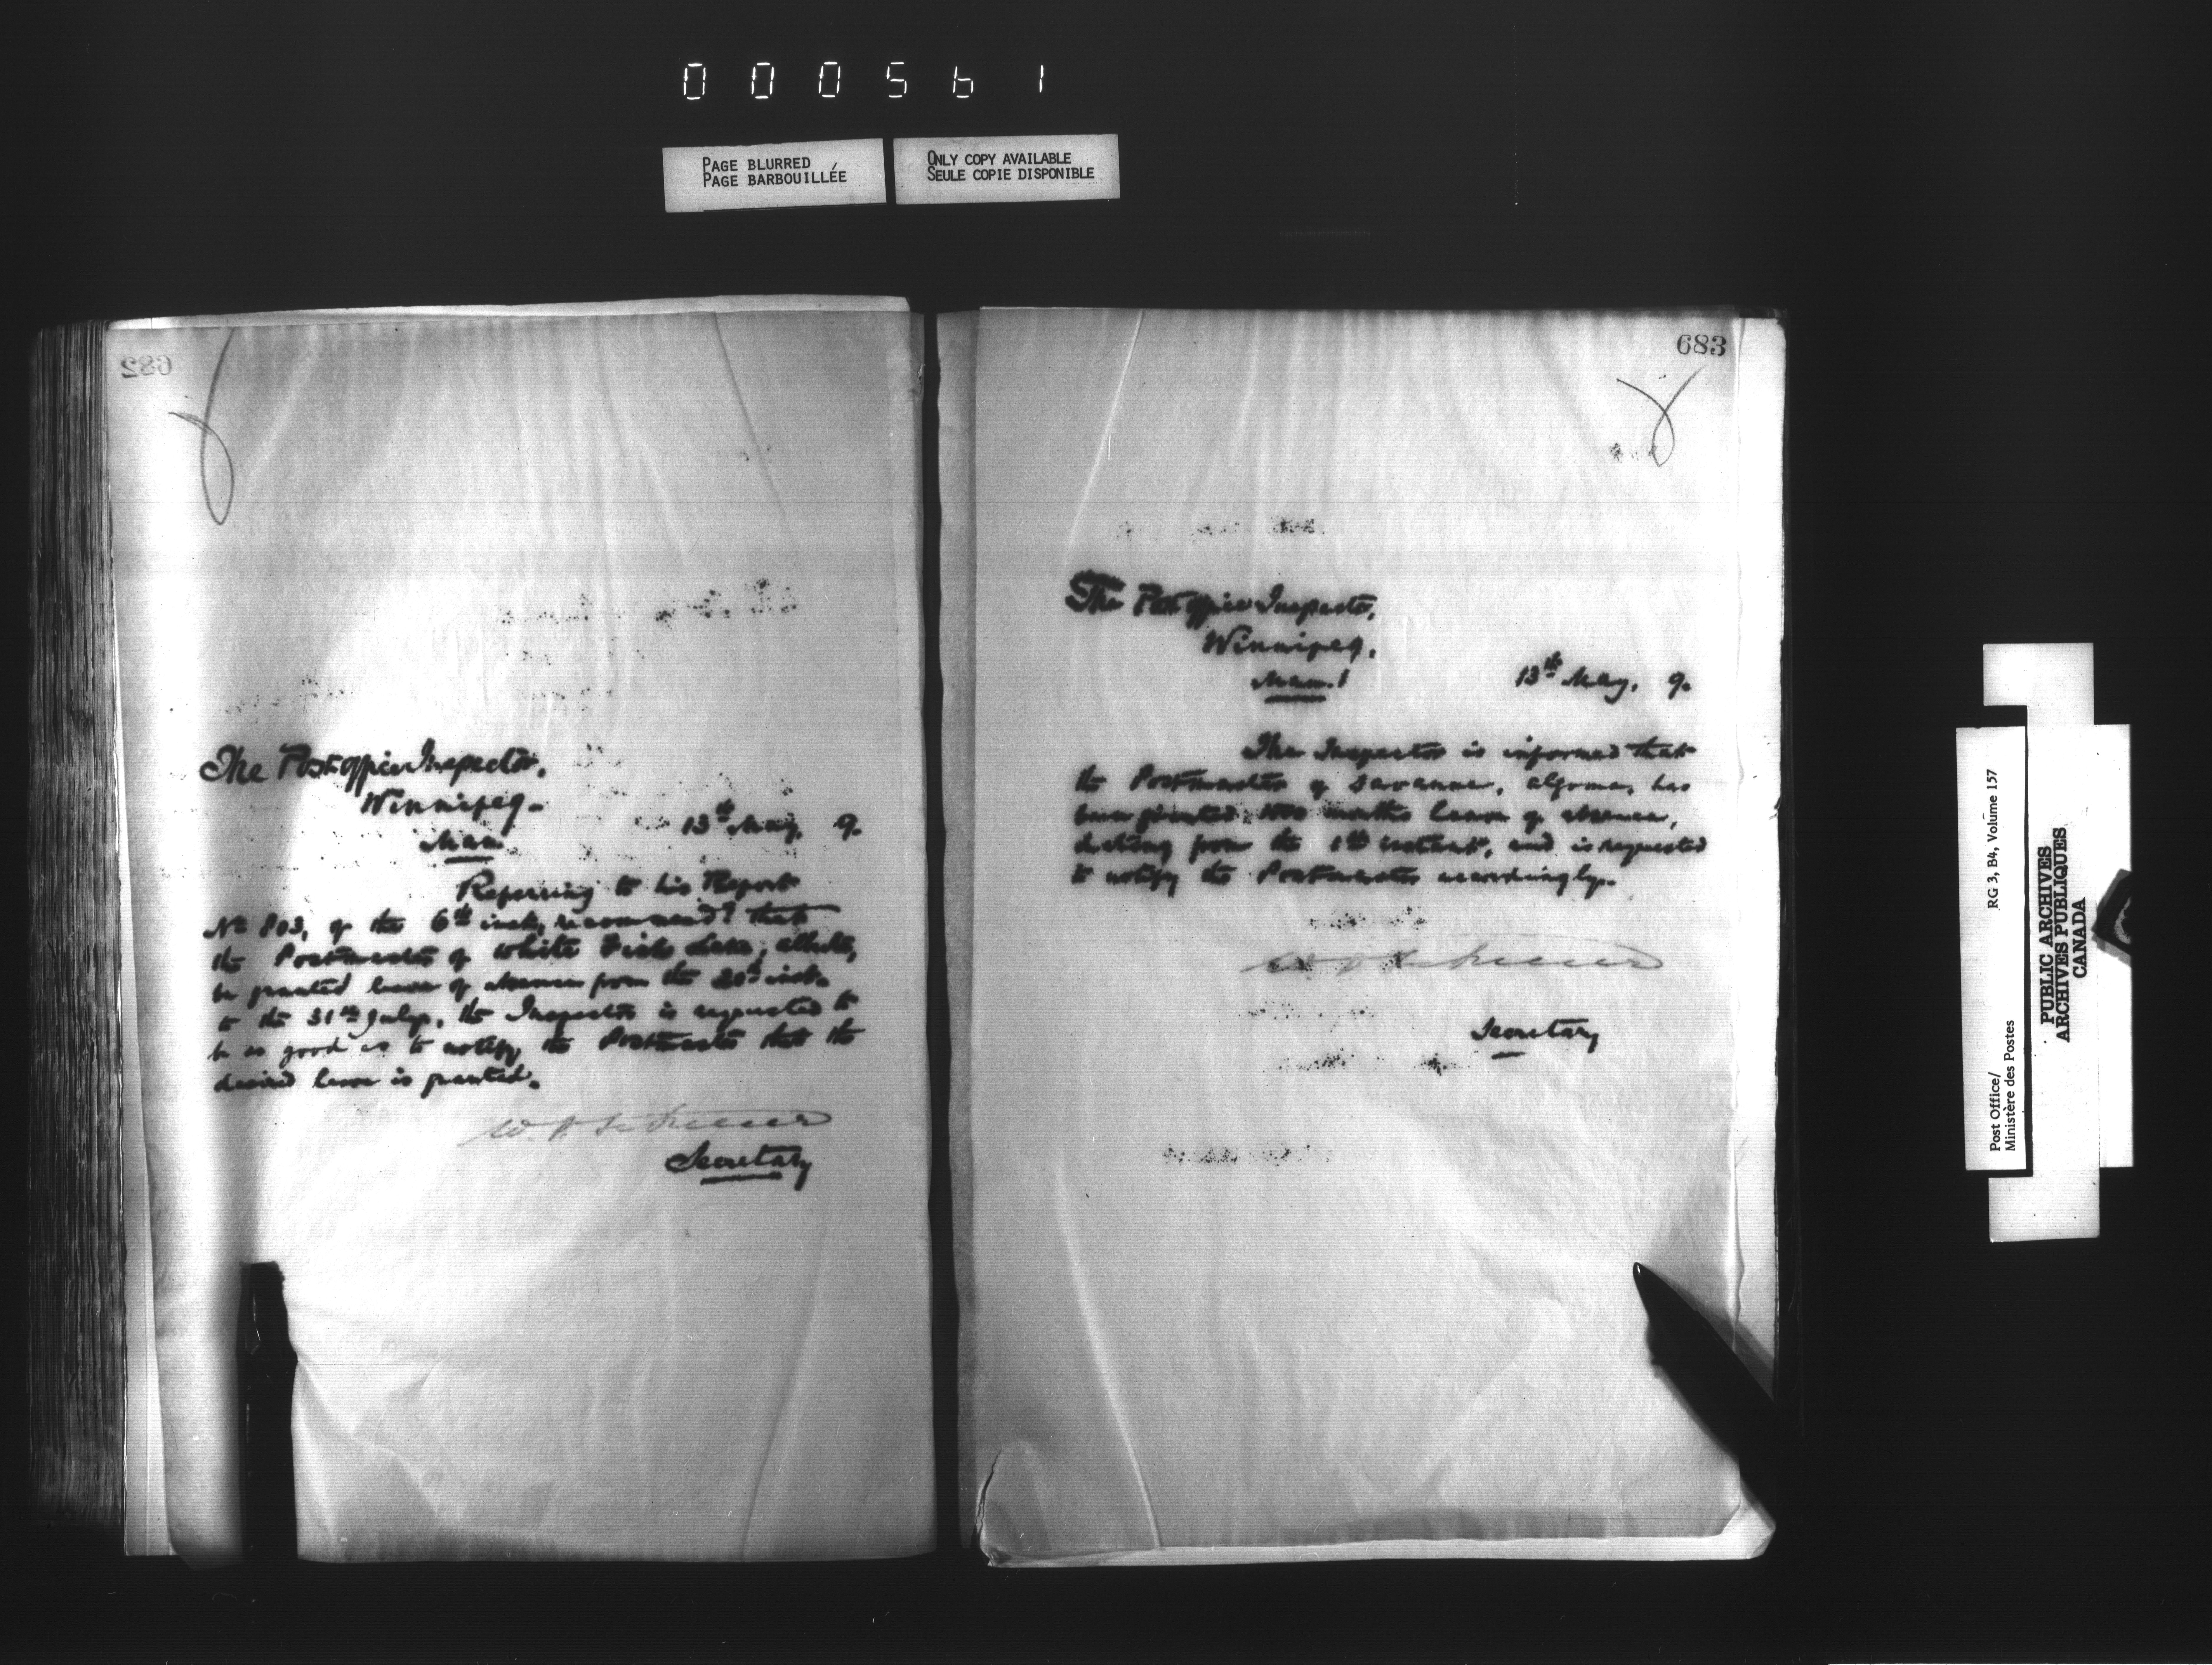 000561
PAGE BLURRED
PAGE BARBOUILLÉE
ONLY COPY AVAILABLE
SEULE COPIE DISPONIBLE
682
The Post office Inspector,
Winnipeg.
Man.
13th May, 9.
Referring to his Report
No 803, of the 6th inst, recommendg that
the Postmaster of White Fish Lake, Alberta,
be granted leave of absence from the 20th inst.
to the 31st July, the Inspector is requested to
be so good as to notify the Postmaster that the
desired leave is granted.
Secretary
683
The Post office Inspector,
Winnipeg.
Man.
13th May, 9.
The Inspector is informed that
the Postmaster of Savanne, Algoma, has
been granted two months leave of absence,
dating from the 1st instant, and is requested
to notify the Postmaster accordingly.
Secretary
Post Office/
Ministère des Postes
RG 3, B4, Volume 157
PUBLIC ARCHIVES
ARCHIVES PUBLIQUES
CANADA